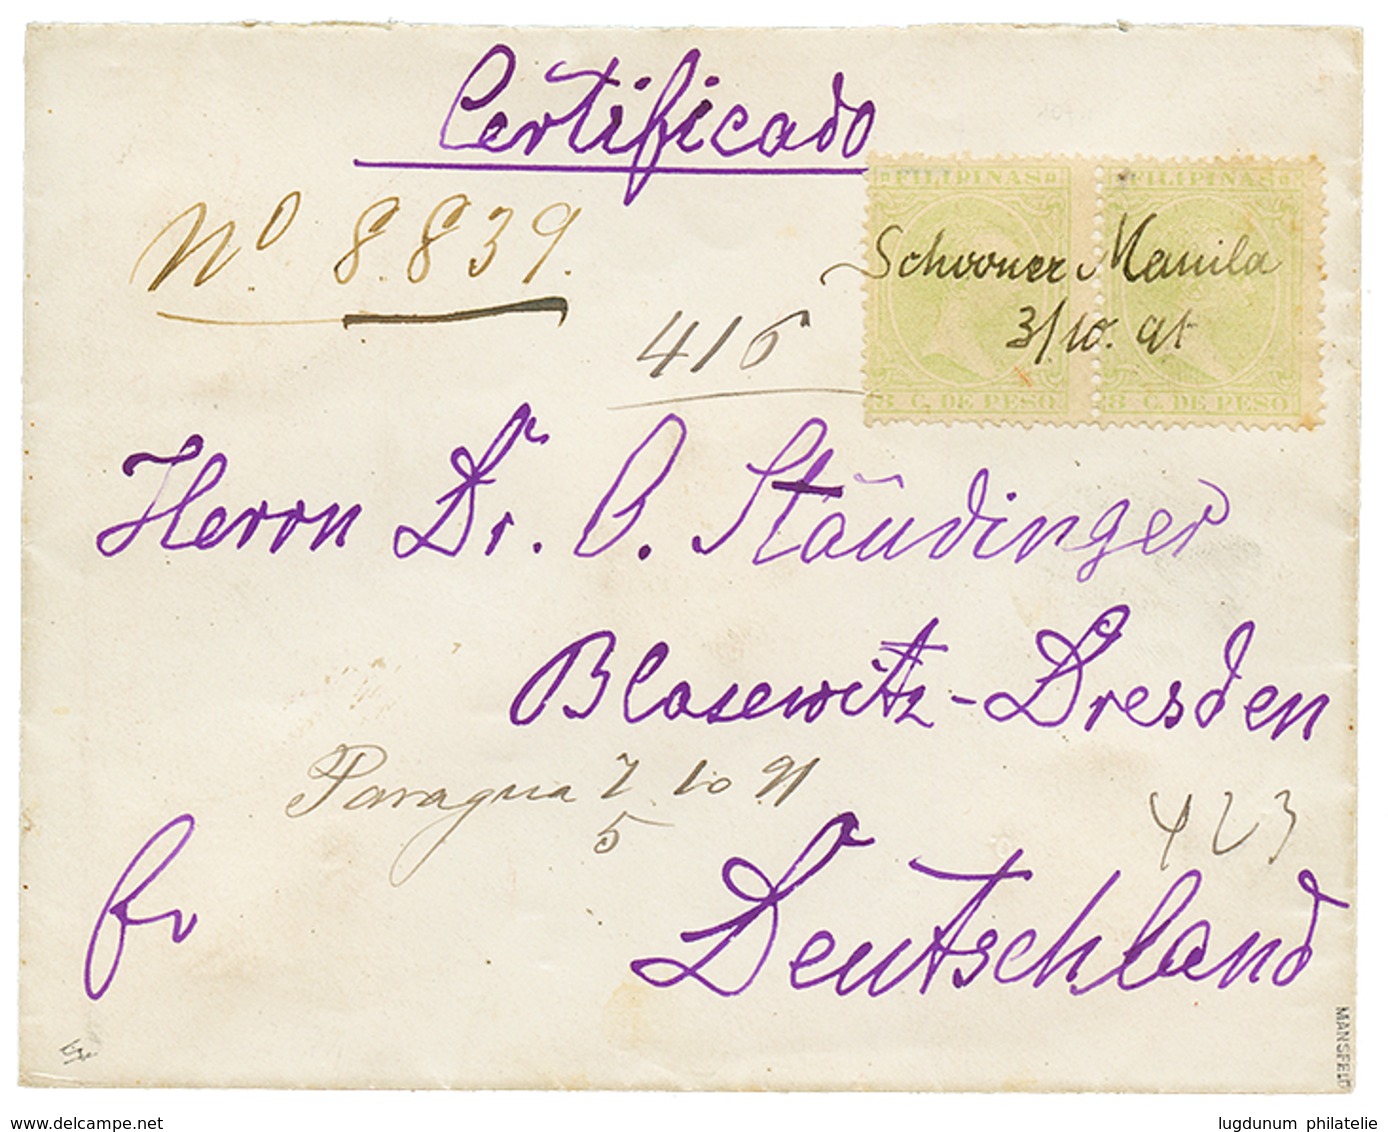 Certificado
Nº 8.839.
416
FILIPINAS FILIPINAS
Schooner Manila
3/10. 91
8 C. DE PESO 8 C. DE PESO
Herrn Dr. O. Stäudinger
Blasewitz-Dresden
Paragua 7 10 91
5
423
fr
Deutschland
MANSFELD
www.delcampe.net
lugdunum philatelie